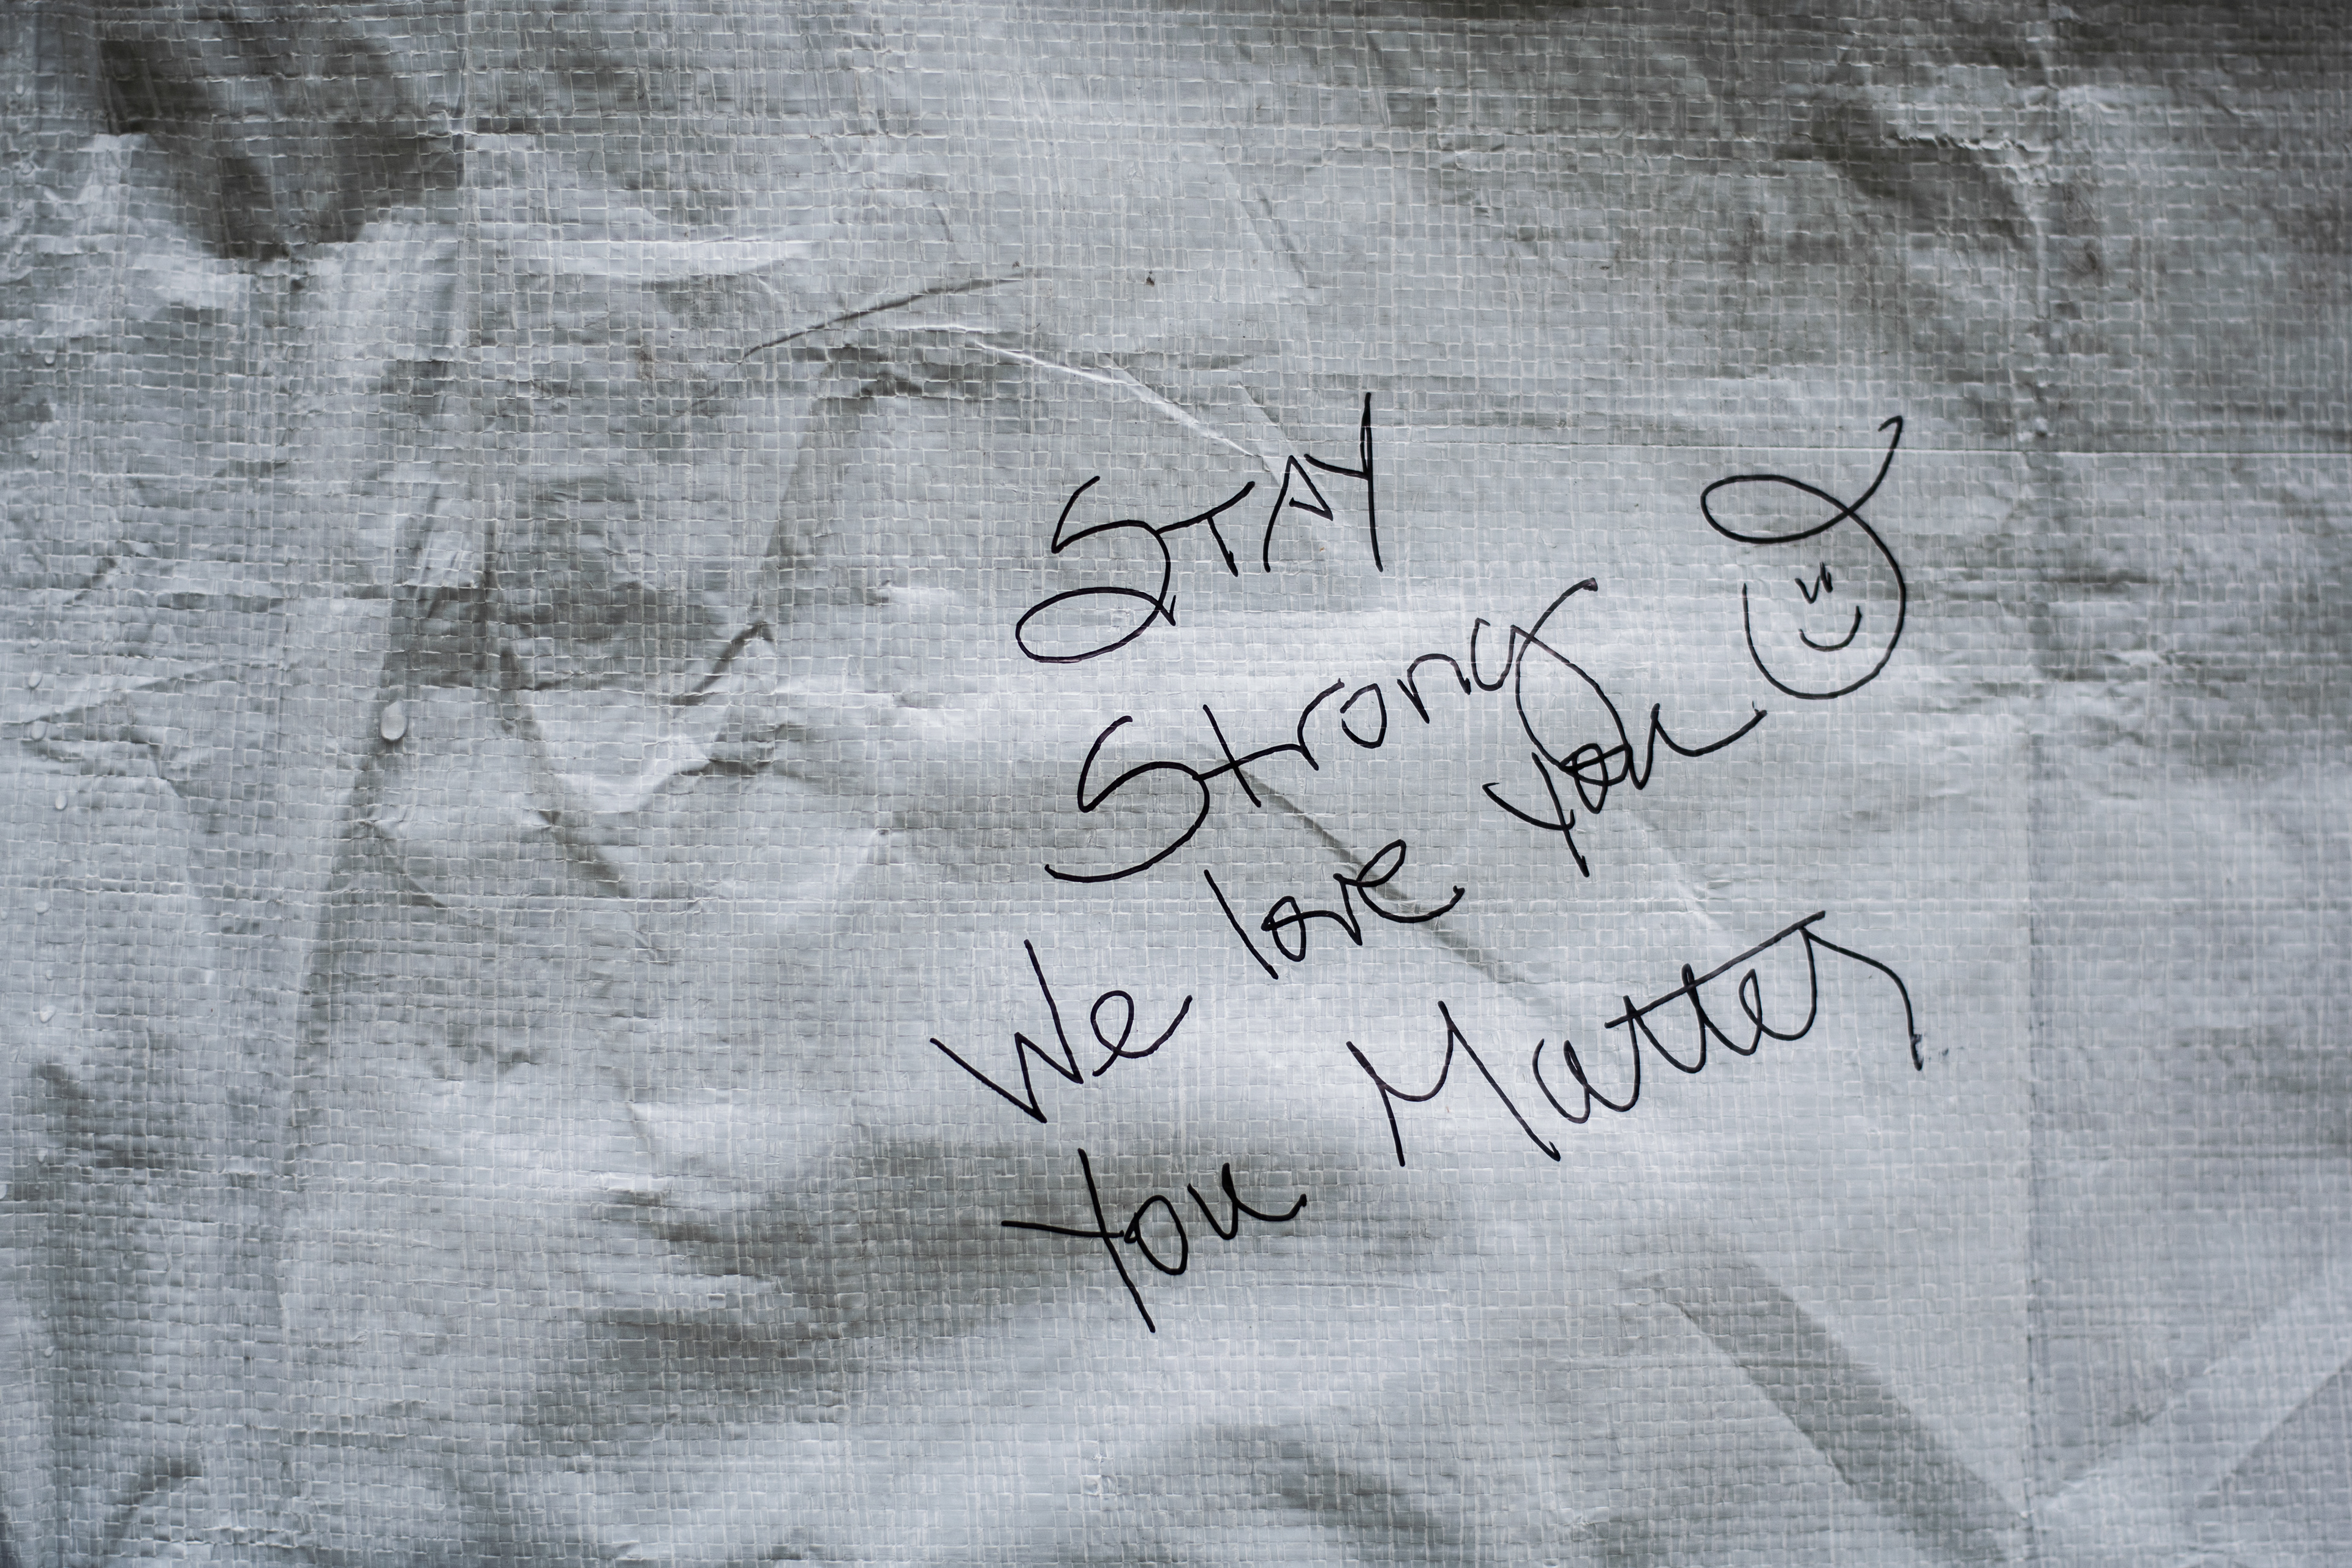 STAY
Strong
We love you
You Matter